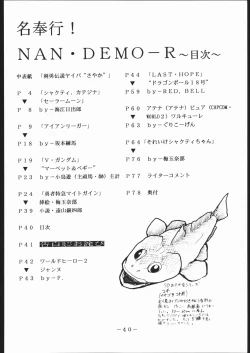 名奉行！
NAN・DEMO－R～目次～
中表紙 「闘男伝説ケイバ"さやか"」
P 4 「シャクティ、カテジナ」
▼ 「セーラームーン」
P 8 by－湯江日出郎
P 9 「アイアンリーガー」
▼
P18 by－坂本緑馬
P19 「V・ガンダム」
▼ "マーベット＆ペギー"
P23 by－小島遊（主頭馬・師）主計
P24 「勇者特急マイトガイン」
▼ 挿絵・梅玉奈部
P39 小説・遠山鋼四郎
P40 目次
P41
P42 ワールドヒーロー2
▼ ジャンヌ
P43 by－F．
P44 「LAST・HOPE」
▼ "ドラゴンボール18号"
P59 by－RED, BELL
P60 アテナ（アテナ）ピュア（CAPCOM・
▼ WORLD2）ワルキューレ
P63 by－ぐりこーげん
P64 「それいけシャクティちゃん」
▼
P76 by－梅玉奈部
P77 ライターコメント
P78 奥付
－40－